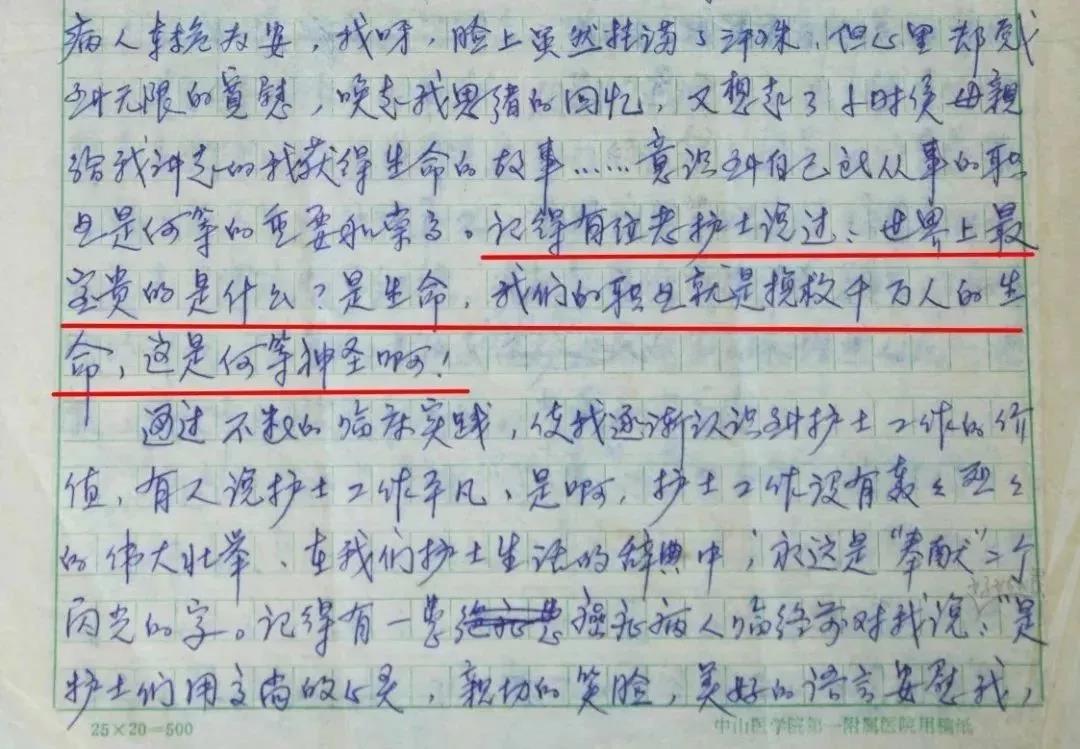 病人转危为安，我呀，脸上虽然挂满了汗珠，但心里却感
到无限的宽慰，唤起我思绪的回忆，又想起了小时侯母亲
给我讲起的我获得生命的故事……意识到自己已从事的职
业是何等的重要和崇高。记得有位老护士说过：世界上最
宝贵的是什么？是生命，我们的职业就是挽救千万人的生
命，这是何等神圣啊！
通过不数的临床实践，使我逐渐认识到护士工作的价
值，有人说护士工作平凡、是啊，护士工作没有轰々烈々
的伟大壮举、在我们护士生活的辞典中；永远是“奉献”二个
闪光的字。记得有一患癌症病人临终前对我说：“是
护士们用高尚的心灵，亲切的笑脸，美好的语言安慰我，
25×20=500
中山医学院第一附属医院用稿纸